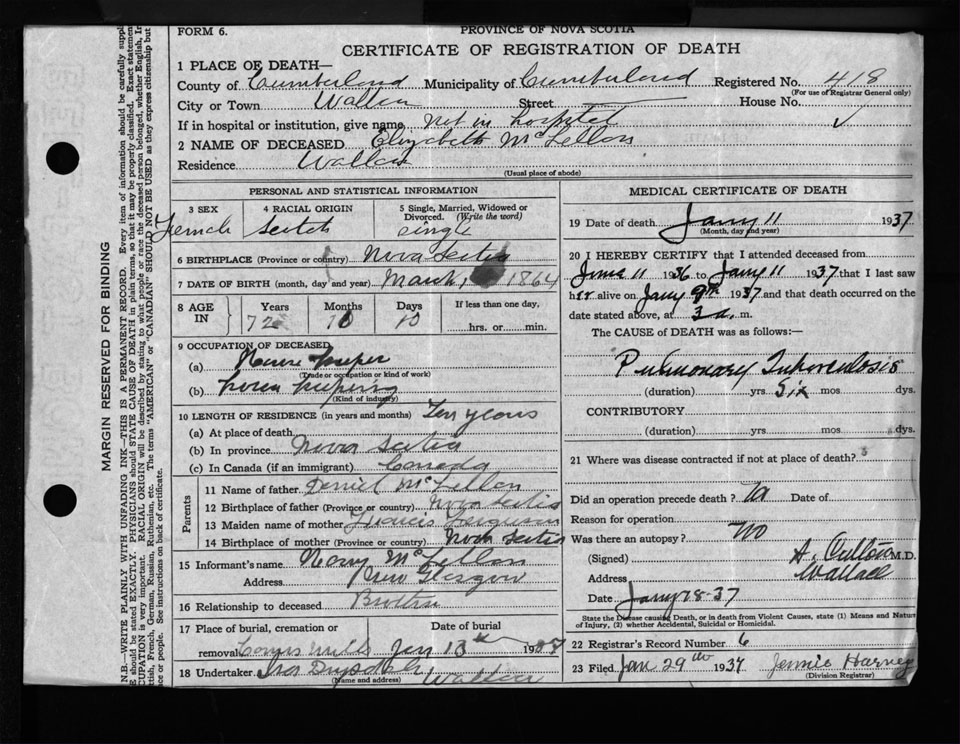 FORM 6.
PROVINCE OF NOVA SCOTIA
CERTIFICATE OF REGISTRATION OF DEATH
1 PLACE OF DEATH—
County of Cumberland Municipality of Cumberland Registered No. 418
(For use of Registrar General only)
City or Town Wallace Street House No.
If in hospital or institution, give name Not in hospital
2 NAME OF DECEASED Elizabeth McLellan
Residence Wallace
(Usual place of abode)
PERSONAL AND STATISTICAL INFORMATION
3 SEX 4 RACIAL ORIGIN 5 Single, Married, Widowed or Divorced. (Write the word)
Female Scotch single
6 BIRTHPLACE (Province or country) Nova Scotia
7 DATE OF BIRTH (month, day and year) March 1 1864
8 AGE IN Years Months Days If less than one day,
72 10 10 hrs. or min.
9 OCCUPATION OF DECEASED
(a) House keeper
(Trade or occupation or kind of work)
(b) House keeping
(Kind of industry)
10 LENGTH OF RESIDENCE (in years and months) Ten years
(a) At place of death
(b) In province Nova Scotia
(c) In Canada (if an immigrant) Canada
Parents
11 Name of father Daniel McLellan
12 Birthplace of father (Province or country) Nova Scotia
13 Maiden name of mother Frances Ferguson
14 Birthplace of mother (Province or country) Nova Scotia
15 Informant's name McLellan
Address New Glasgow
16 Relationship to deceased Brother
17 Place of burial, cremation or Date of burial
removal Mills Jan 13th 19
18 Undertaker Drysdale Wallace
(Name and address)
MEDICAL CERTIFICATE OF DEATH
19 Date of death Jany 11 1937
(Month, day and year)
20 I HEREBY CERTIFY that I attended deceased from
June 11 1936 to Jany 11 1937 that I last saw
her alive on Jany 9th 1937 and that death occurred on the
date stated above, at 3 a. m.
The CAUSE of DEATH was as follows:—
Pulmonary Tuberculosis
(duration) yrs. Six mos. dys.
CONTRIBUTORY
(duration) yrs. mos. dys.
21 Where was disease contracted if not at place of death?
Did an operation precede death? No Date of
Reason for operation
Was there an autopsy? No
(Signed) A. M.D.
Address Wallace
Date Jany 18-37
State the Disease causing Death, or in death from Violent Causes, state (1) Means and Nature
of Injury, (2) whether Accidental, Suicidal or Homicidal.
22 Registrar's Record Number 6
23 Filed Jan 29th 1937 Jennie Harvey
(Division Registrar)
MARGIN RESERVED FOR BINDING
N.B.—WRITE PLAINLY WITH UNFADING INK—THIS IS A PERMANENT RECORD. Every item of information should be carefully
should be stated EXACTLY. PHYSICIANS should STATE CAUSE OF DEATH in plain terms, so that it may be properly classified. Exact statement
CUPATION is very important. RACIAL ORIGIN will be described by stating to what people or race the deceased person belonged, whether English,
French, German, Russian, Ruthenian, etc. The terms "AMERICAN" or "CANADIAN" SHOULD NOT BE USED as they express citizenship but
or people. See instructions on back of certificate.